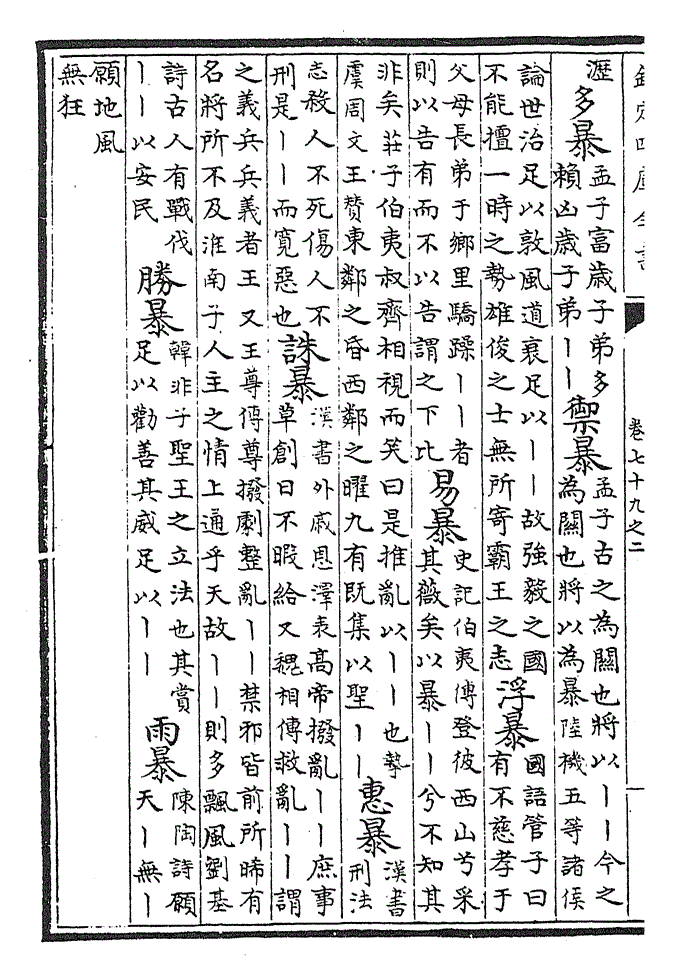 欽定四庫全書 卷七十九之二
瀝多暴孟子富歲子弟多賴凶歲子弟丨丨禦暴孟子古之為關也將以丨丨今之為關也將以為暴陸機五等諸侯
論世治足以敦風道衰足以丨丨故強毅之國不能擅一時之勢雄俊之士無所寄霸王之志浮暴國語管子曰有不慈孝于
父母長弟于鄉里驕躁丨丨者則以告有而不以告謂之下比易暴史記伯夷傳登彼西山兮采其薇矣以暴丨丨兮不知其
非矣莊子伯夷叔齊相視而笑曰是推亂以丨丨也摯虞周文王贊東鄰之昏西鄰之曜九有既集以聖丨丨惠暴漢書刑法
志殺人不死傷人不刑是丨丨而寬惡也誅暴漢書外戚恩澤表髙帝撥亂丨丨庶事草創日不暇給又魏相傳救亂丨丨謂
之義兵兵義者王又王尊傳尊撥劇整亂丨丨禁邪皆前所睎有名將所不及淮南子人主之情上通乎天故丨丨則多飄風劉基
詩古人有戰伐丨丨以安民勝暴韓非子聖王之立法也其賞足以勸善其威足以丨丨雨暴陳陶詩願天丨無丨
願地風無狂